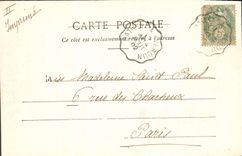 II
Imprimé
CARTE POSTALE
Ce côté est exclusivement réservé à l'adresse
Madeleine Saint Paul
6 rue du
Paris